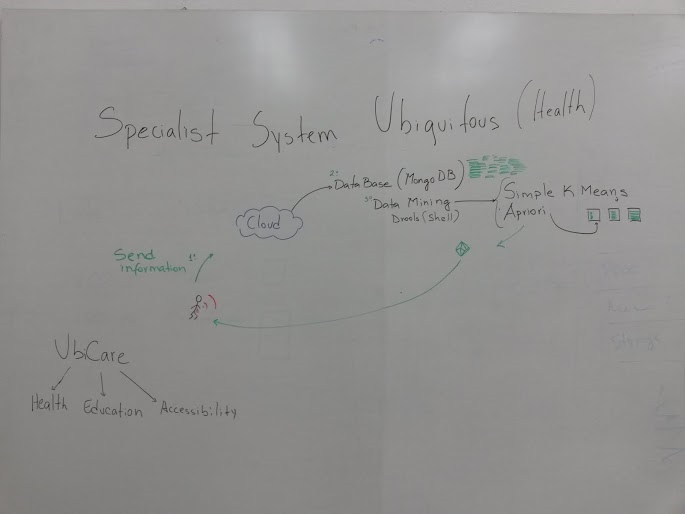 Specialist System Ubiquitous (Health)
2º DataBase (MongoDB)
3º Data Mining
Drools (Shell)
Simple K Means
Apriori
Cloud
Send
information
1º
UbiCare
Health Education Accessibility